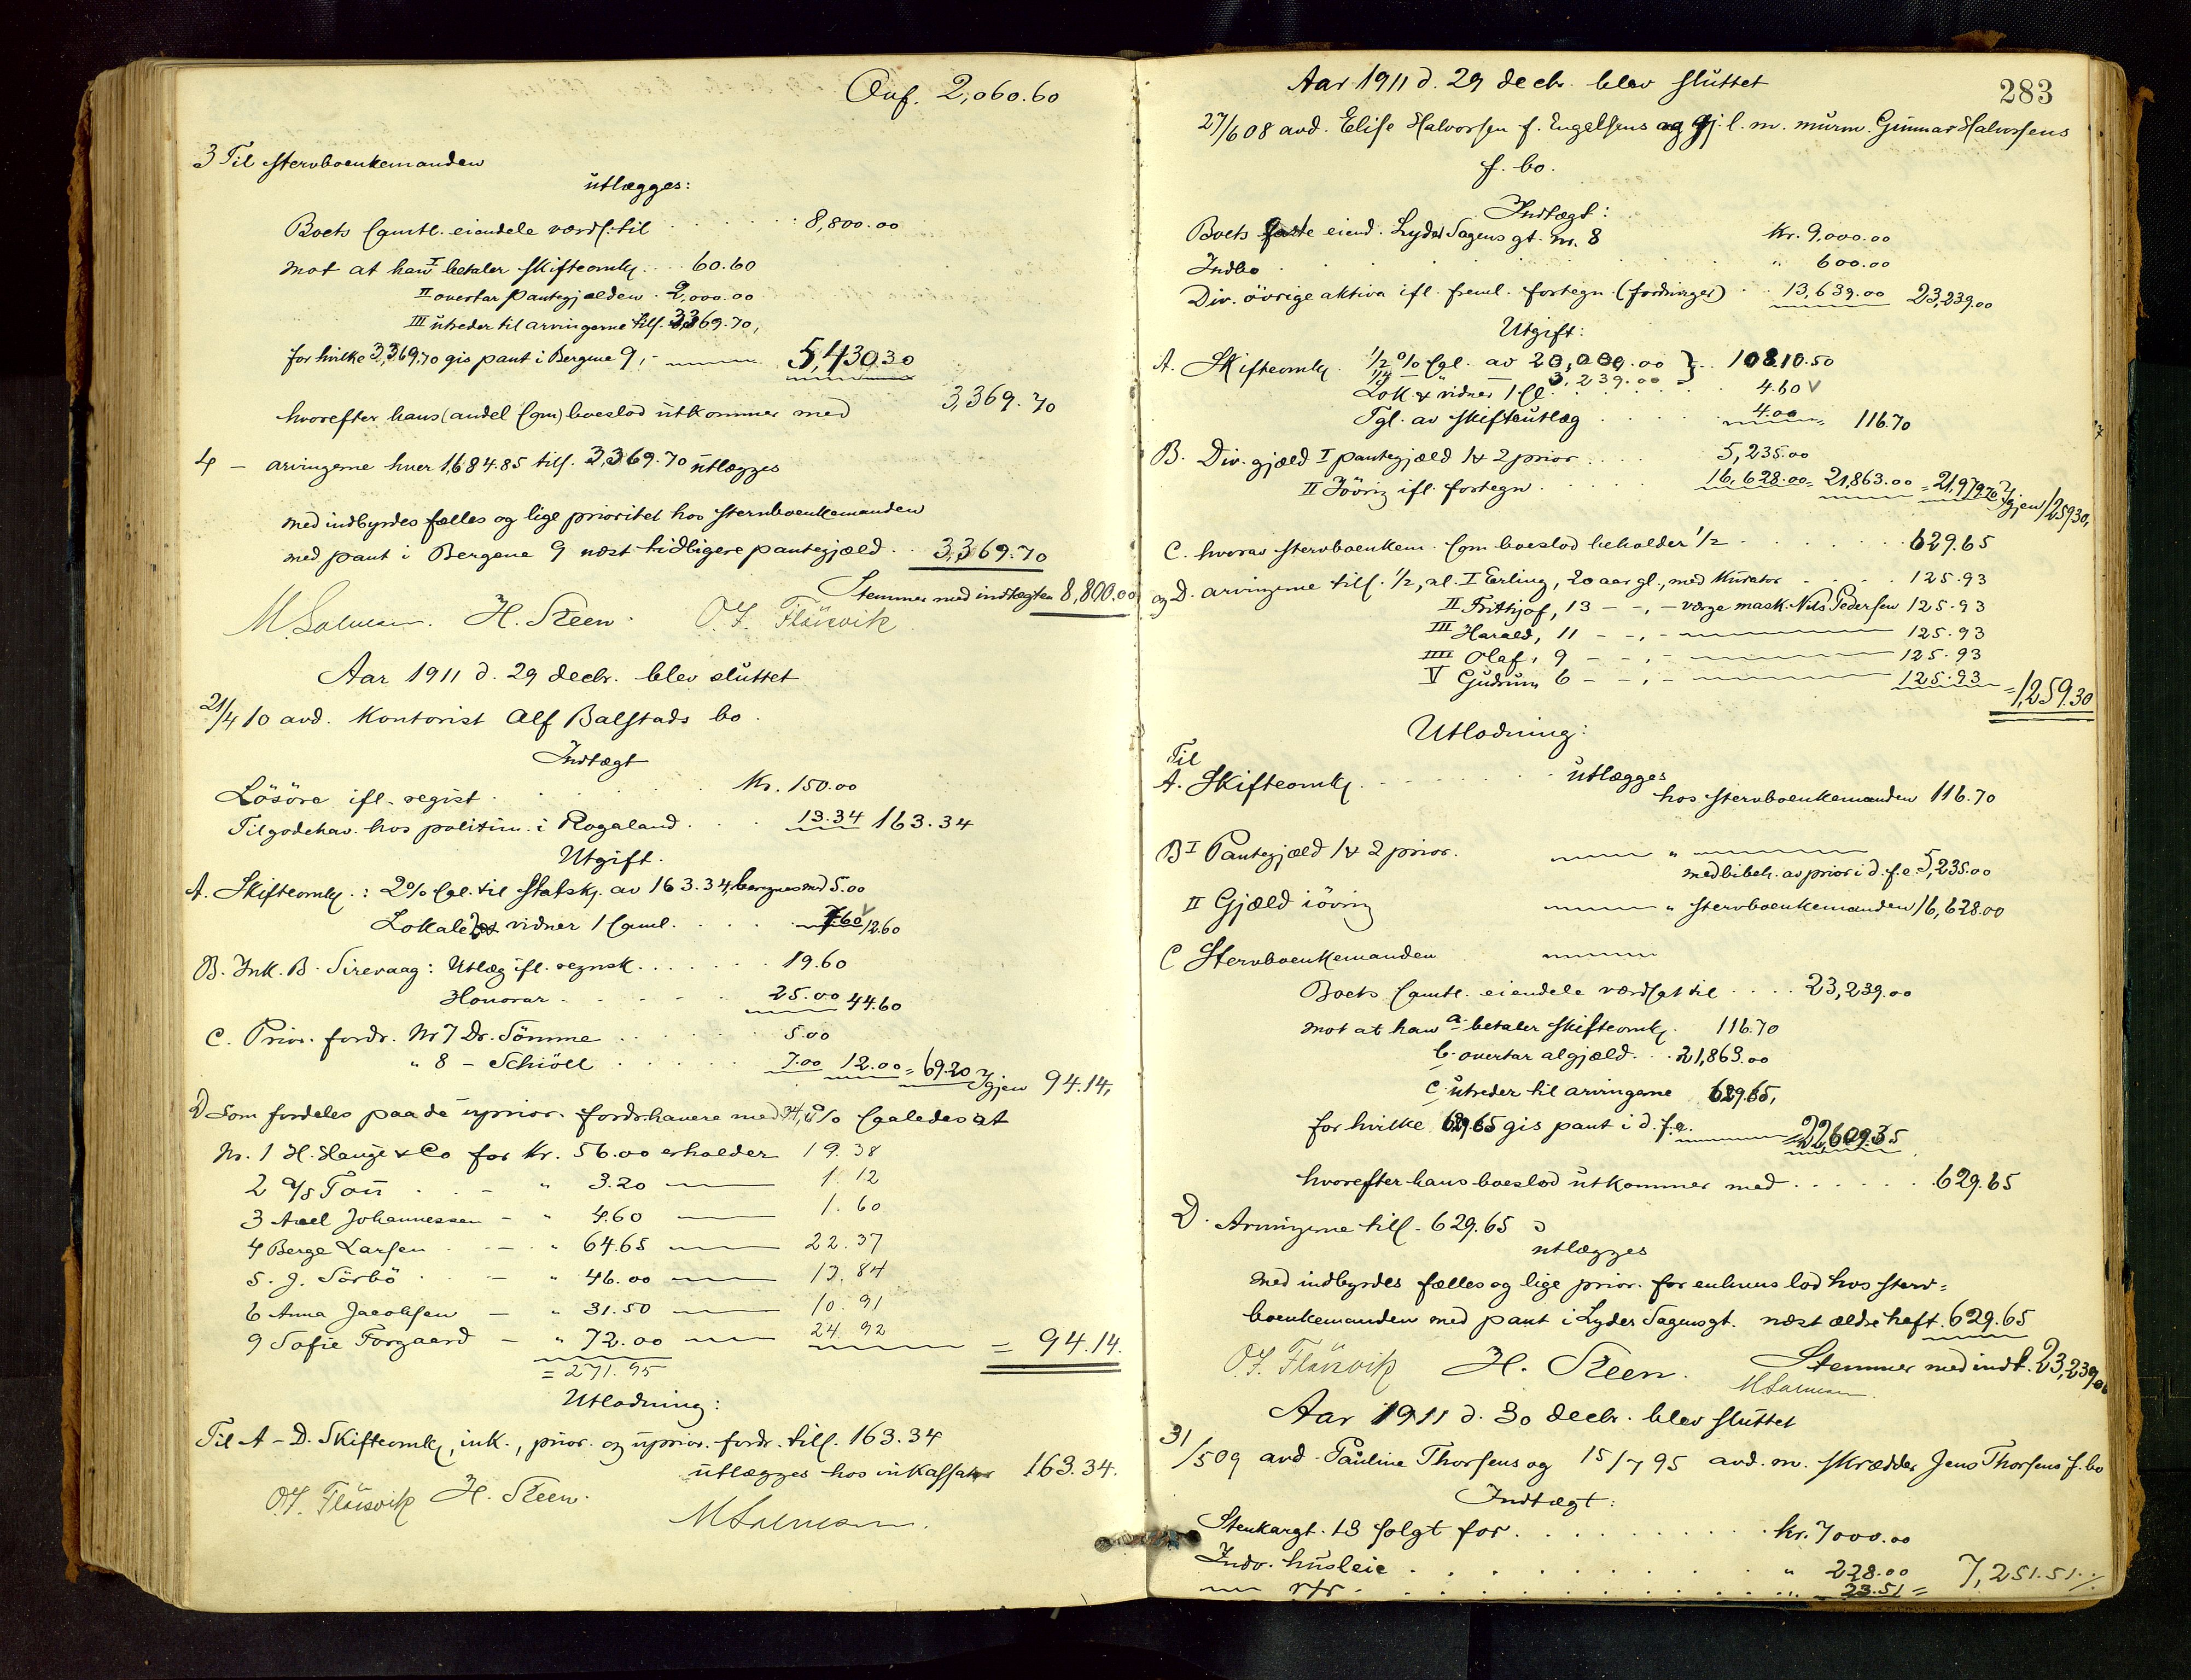 Ovf. 2,060.60
3 Til stervboenkemanden
utlægges:
Boets samtl. eiendele værds. til 8,800.00
mot at han I betaler skifteomk. 60.60
II overtar pantegjælden 2,000.00
III utreder til arvingerne tils. 3369.70,
for hvilke 3,369.70 gis pant i Bergene 9, – 5,430.30
hvorefter hans (andel som) boeslod utkommer med 3,369.70
4 – arvingerne hver 1,684.85 tils. 3,369.70 utlægges
med indbyrdes fælles og lige prioritet hos stervboenkemanden
med pant i Bergene 9 næst tidligere pantegjæld 3,369.70
Stemmer med indtægten 8,800.00
H. Steen.
Aar 1911 d. 29 decbr. blev sluttet
21/4 10 avd. Kontorist Alf Balstads bo.
Indtægt
Lösöre ifl. regist. Kr. 150.00
Tilgodehav. hos politim. i Rogaland 13.34 163.34
Utgift.
A. Skifteomk.: 2% sgl. til Statsk. av 163.34, beregnes med 5.00
Lokale & vidner 1 saml. 7.60 12.60
B. Ink. B. Sirevaag: Utlæg ifl. regnsk. 19.60
Honorar 25.00 44.60
C. Prior. fordr. Nr 7 Dr. Sömme 5.00
" 8 – Schiöll 7.00 12.00 = 69.20 Igjen 94.14,
D Som fordeles paa de uprior. fordr.havere med 34,6% saaledes at
Nr. 1 H. Hauge & Co for Kr. 56.00 erholder 19.38
2 A/S Tou – " 3.20 1.12
3 Axel Johannessen – " 4.60 1.60
4 Berge Larsen – " 64.65 22.37
5. J. Sörbö – " 46.00 13.84
6 Anna Jacobsen – " 31.50 10.91
9 Sofie Torgaard – " 72.00 24.92 = 94.14.
= 271.95
Utlodning:
Til A – D. Skifteomk., ink., prior. og uprior. fordr. tils. 163.34
utlægges hos inkassator 163.34.
H. Steen.
283
Aar 1911 d. 29 decbr. blev sluttet
27/6 08 avd. Elise Halvorsen f. Engelsens og gj. l. m. murm. Gunnar Halvorsens
f. bo.
Indtægt:
Boets faste eiend. Lyder Sagens gt. nr. 8 Kr. 9,000.00
Indbo " 600.00
Div. övrige aktiva ifl. freml. fortegn. (fordringer) 13,639.00 23,239.00
Utgift:
A. Skifteomk. 1/2% sgl. av 20,000.00 } 108.10.50
1/4 – " – 3,239.00
Lok. & vidner 1 sl. 4.60
Tgl. av skifteutlæg 4.00 116.70
B. Div. gjæld I pantegjæld 1 & 2 prior 5,235.00
II Iövrig ifl. fortegn. 16,628.00 = 21,863.00 = 21,979.70 Igjen 1,259.30,
C. hvorav stervboenkem. som boeslod beholder 1/2 629.65
og D. arvingerne tils. 1/2, al. I Erling, 20 aar gl., med Kurator 125.93
II Frithjof, 13 – – , – værge mask. Nils Pedersen 125.93
III Harald, 11 – – , – 125.93
IIII Olaf, 9 – – , – 125.93
V Gudrun 6 – – , – 125.93 = 1,259.30
Utlodning:
Til
A. Skifteomk. utlægges
hos stervboenkemanden 116.70
B I Pantegjæld 1 & 2 prior. "
med bibeh. av prior i d. f. e. 5,235.00
II Gjæld iövrig " stervboenkemanden 16,628.00
C Stervboenkemanden
Boets samtl. eiendele værdsat til 23,239.00
mot at han a. betaler skifteomk. 116.70
b. overtar al gjæld 21,863.00
c. utreder til arvingerne 629.65,
for hvilke 629.65 gis pant i d. f. e. 22,609.35
hvorefter hans boeslod utkommer med 629.65
D. Arvingerne tils. 629.65
utlægges
med indbyrdes fælles og lige prior. for enhvers lod hos sterv=
boenkemanden med pant i Lyder Sagensgt. næst ældre heft. 629.65
H. Steen. Stemmer med indt. 23,239.00
Aar 1911 d. 30 decbr. blev sluttet
31/5 09 avd. Pauline Thorsens og 15/7 95 avd. m. skrædder Jens Thorsens f. bo
Indtægt:
Stenkargt. 18 solgt for Kr. 7000.00
Indv. husleie " 228.00
rtr. " 23.51 = 7,251.51 ./.